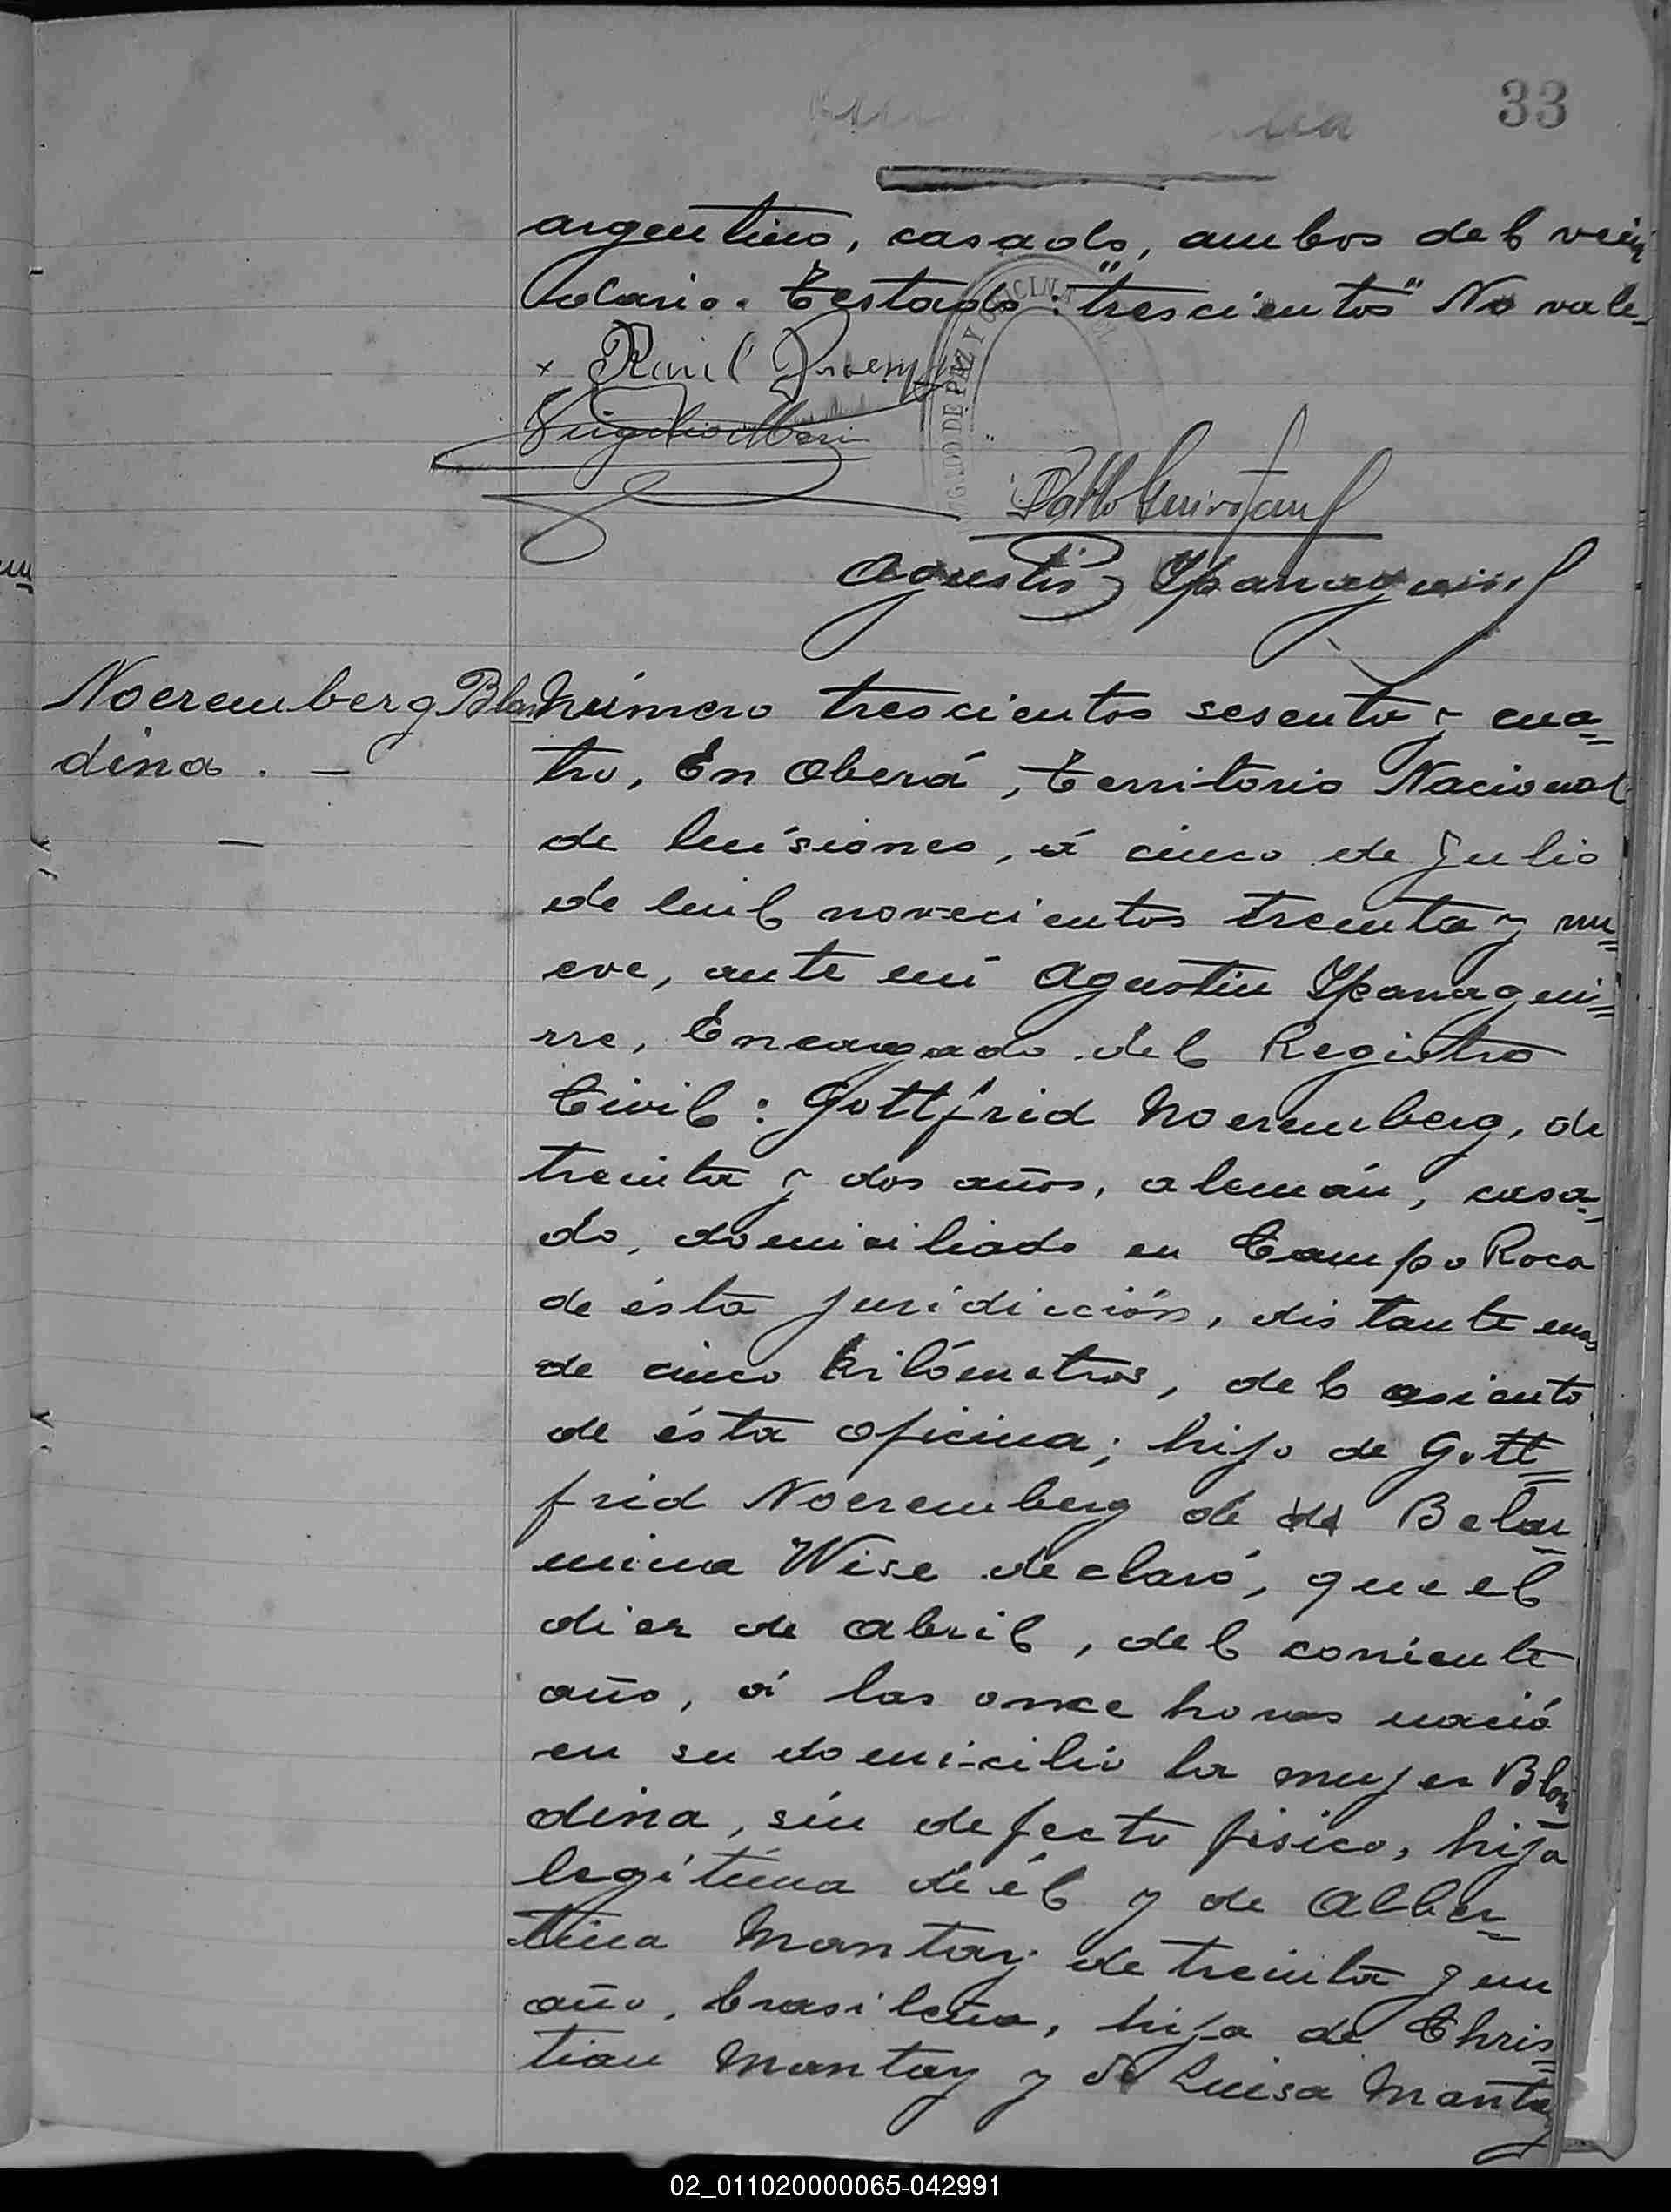 33
argentino, casado, ambos del vecin
dario. Testado: "trescientos" No vale.
OFICINA
JUZGADO DE PAZ Y
Pablo
Agustin Yparraguirre
Noeremberg Blan
dina. —
Número trescientos sesenta y cua=
tro, En Oberá, Territorio Nacional
de Misiones, á cinco de Julio
de mil novecientos treinta y nu=
eve, ante mi Agustin Yparragui=
rre, Encargado del Registro
Civil: Gottfrid Noeremberg, de
treinta y dos años, alemán, casa=
do, domiciliado en Campo Roca
de ésta juridicción, distante mas
de cinco kilómetros, del asiento
de ésta oficina; hijo de Gott=
frid Noeremberg de de Belar=
mina Wise declaró, que el
diez de abril, del corriente
año, á las once horas nació
en su domicilio la mujer Blan
dina, sin defecto fisico, hija
legítima de él y de Alber=
tina Mantay de treinta y un
año, brasileña, hija de Chris=
tian Mantay y de Luisa Mantay
02_011020000065-042991